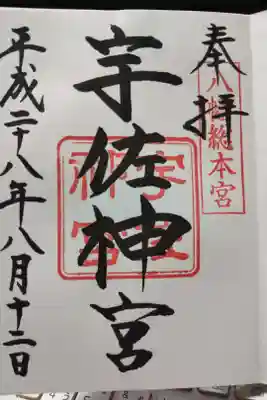 奉拝
八幡総本宮
宇佐神宮
宇佐
神宮
平成二十八年八月十二日